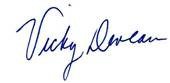 Vicky Deveau